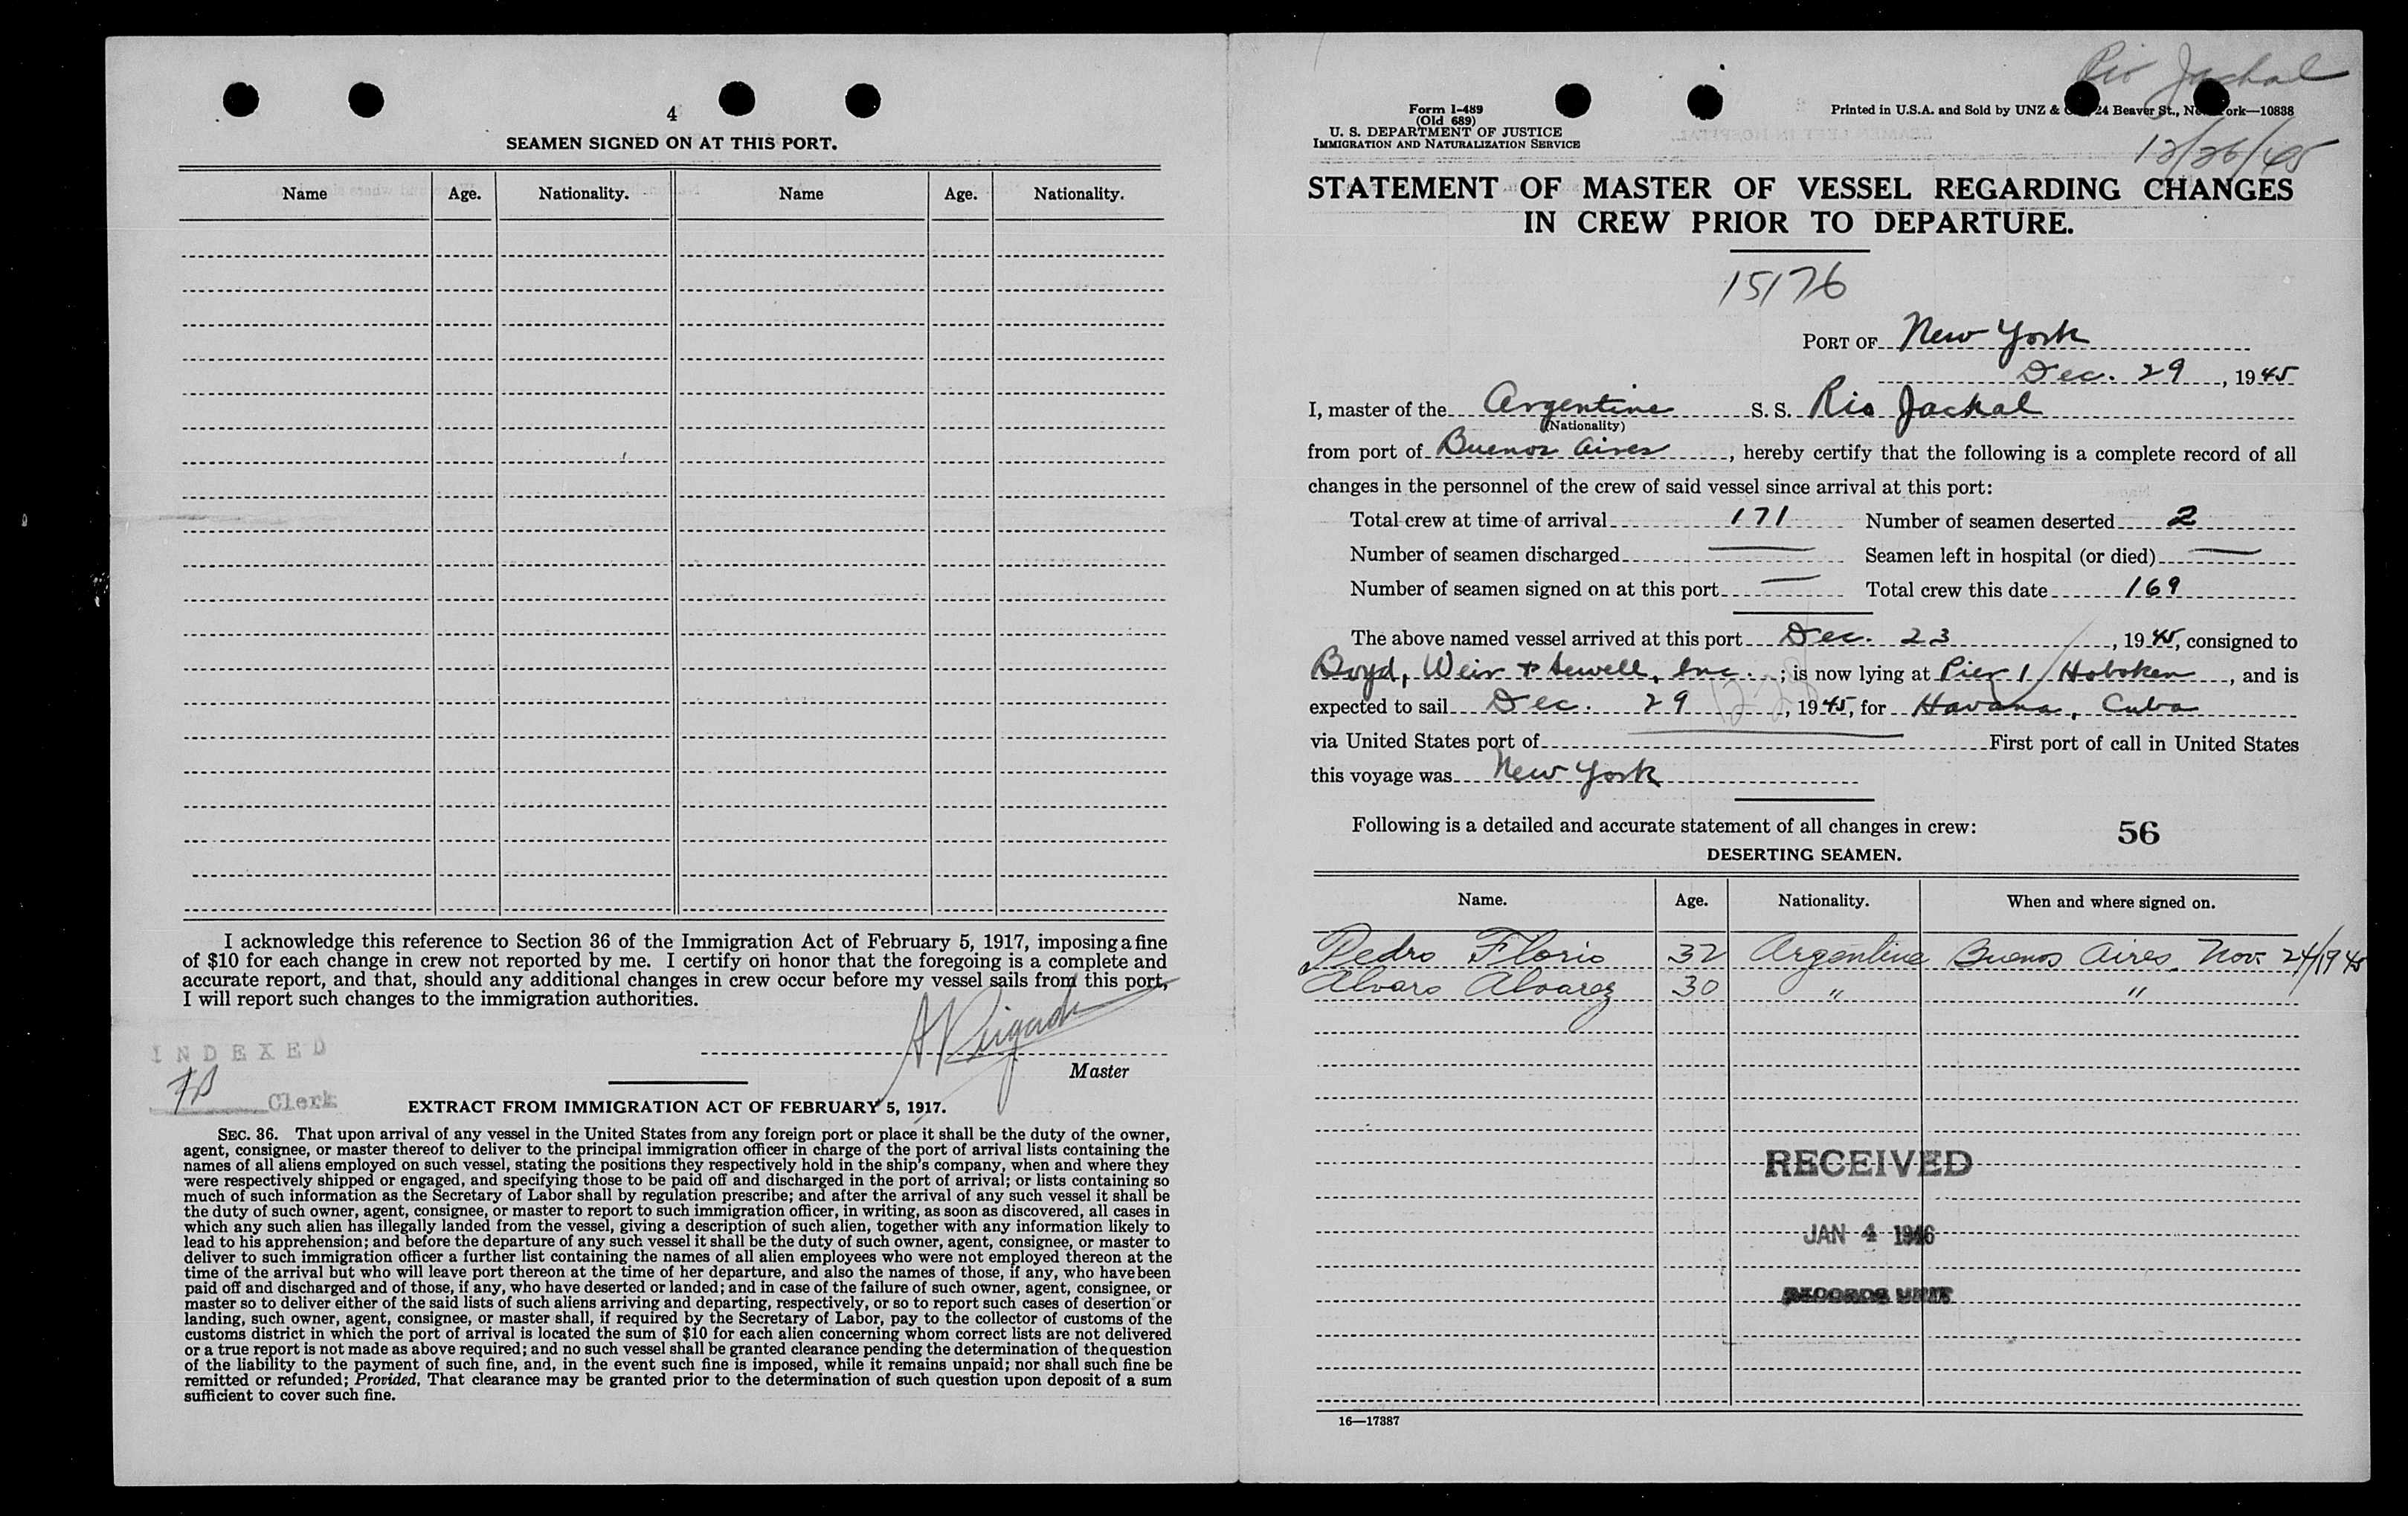 4
SEAMEN SIGNED ON AT THIS PORT.
Name Age. Nationality. Name Age. Nationality.
I acknowledge this reference to Section 36 of the Immigration Act of February 5, 1917, imposing a fine
of $10 for each change in crew not reported by me. I certify on honor that the foregoing is a complete and
accurate report, and that, should any additional changes in crew occur before my vessel sails from this port,
I will report such changes to the immigration authorities.
Master
INDEXED
Clerk
EXTRACT FROM IMMIGRATION ACT OF FEBRUARY 5, 1917.
SEC. 36. That upon arrival of any vessel in the United States from any foreign port or place it shall be the duty of the owner,
agent, consignee, or master thereof to deliver to the principal immigration officer in charge of the port of arrival lists containing the
names of all aliens employed on such vessel, stating the positions they respectively hold in the ship's company, when and where they
were respectively shipped or engaged, and specifying those to be paid off and discharged in the port of arrival; or lists containing so
much of such information as the Secretary of Labor shall by regulation prescribe; and after the arrival of any such vessel it shall be
the duty of such owner, agent, consignee, or master to report to such immigration officer, in writing, as soon as discovered, all cases in
which any such alien has illegally landed from the vessel, giving a description of such alien, together with any information likely to
lead to his apprehension; and before the departure of any such vessel it shall be the duty of such owner, agent, consignee, or master to
deliver to such immigration officer a further list containing the names of all alien employees who were not employed thereon at the
time of the arrival but who will leave port thereon at the time of her departure, and also the names of those, if any, who have been
paid off and discharged and of those, if any, who have deserted or landed; and in case of the failure of such owner, agent, consignee, or
master so to deliver either of the said lists of such aliens arriving and departing, respectively, or so to report such cases of desertion or
landing, such owner, agent, consignee, or master shall, if required by the Secretary of Labor, pay to the collector of customs of the
customs district in which the port of arrival is located the sum of $10 for each alien concerning whom correct lists are not delivered
or a true report is not made as above required; and no such vessel shall be granted clearance pending the determination of the question
of the liability to the payment of such fine, and, in the event such fine is imposed, while it remains unpaid; nor shall such fine be
remitted or refunded; Provided, That clearance may be granted prior to the determination of such question upon deposit of a sum
sufficient to cover such fine.
Rio Jachal
Form I-489
(Old 689)
U. S. DEPARTMENT OF JUSTICE
IMMIGRATION AND NATURALIZATION SERVICE
Printed in U.S.A. and Sold by UNZ & 24 Beaver St., N ork—10838
12/26/45
STATEMENT OF MASTER OF VESSEL REGARDING CHANGES
IN CREW PRIOR TO DEPARTURE.
15176
PORT OF New York
Dec. 29, 1945
I, master of the Argentine S. S. Rio Jachal
(Nationality)
from port of Buenos Aires, hereby certify that the following is a complete record of all
changes in the personnel of the crew of said vessel since arrival at this port:
Total crew at time of arrival 171 Number of seamen deserted 2
Number of seamen discharged — Seamen left in hospital (or died) —
Number of seamen signed on at this port — Total crew this date 169
The above named vessel arrived at this port Dec. 23, 1945, consigned to
Boyd, Weir & Sewell, Inc.; is now lying at Pier 1 Hoboken, and is
expected to sail Dec. 29, 1945, for Havana, Cuba
via United States port of — First port of call in United States
this voyage was New York
Following is a detailed and accurate statement of all changes in crew: 56
DESERTING SEAMEN.
Name. Age. Nationality. When and where signed on.
Pedro Florio 32 Argentine Buenos Aires, Nov. 24/1945
Alvaro Alvarez 30 " "
RECEIVED
JAN 4 1946
RECORDS UNIT
16—17387